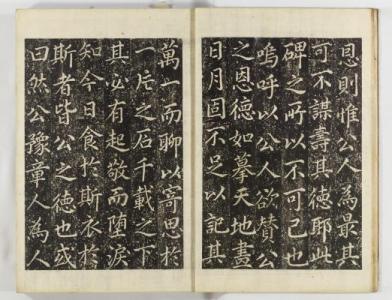 恩則惟公人為最其
可不謀壽其德耶此
碑之所以不可已也
嗚呼以公人欲贊公
之恩德如摹天地畫
日月固不足以記其
萬一而聊以寄思於
一片之石千載之下
其必有起敬而堕淚
知今日食於斯衣於
斯者皆公之德也或
曰然公豫章人為人